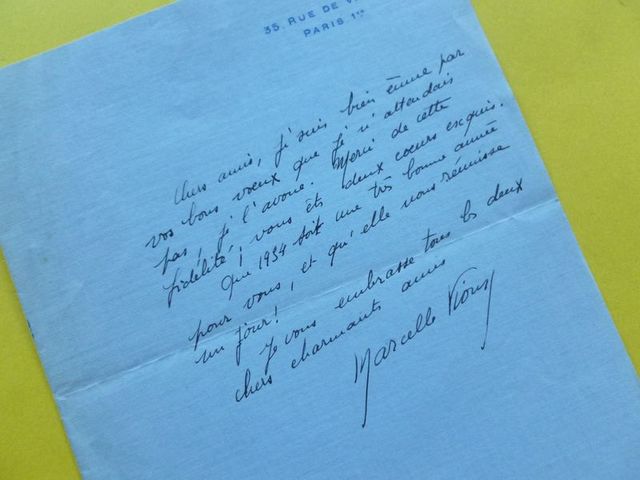 35, RUE DE V
PARIS 1er
Chers amis, je suis bien émue par
vos bons voeux que je n'attendais
pas, je l'avoue. Merci de cette
fidélité; vous êts deux coeurs exquis.
Que 1934 soit une très bonne année
pour vous, et qu'elle nous réunisse
un jour!
Je vous embrasse tous les deux
chers charmants amis
Marcelle